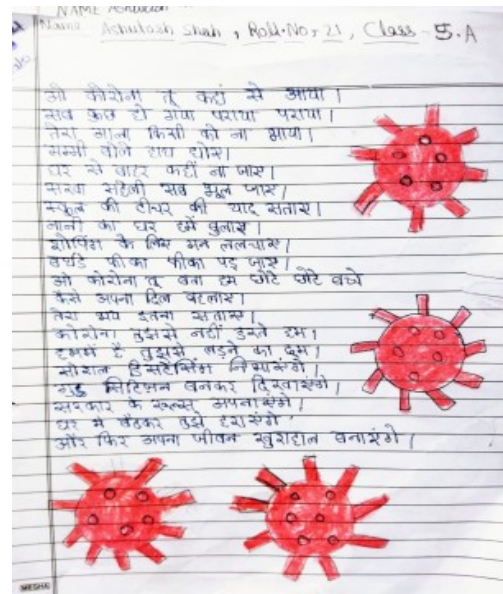 NAME Ashutosh
Name Ashutosh Shah, Roll.No. 21, Class - 5.A
ओ कोरोना तू कहां से आया।
सब कुछ हो गया पराया पराया।
तेरा आना किसी को ना भाया।
मम्मी बोले हाथ धोए।
घर से बाहर कहीं ना जाए।
सखा सहेली सब भूल जाए।
स्कूल की टीचर की याद सताए।
नानी का घर हमें बुलाए।
शोपिंग के लिए मन ललचाए।
बर्थडे फीका फीका पड़ जाए।
ओ कोरोना तू बता हम छोटे छोटे बच्चे
कैसे अपना दिल बहलाए।
तेरा भय इतना सताए।
कोरोना तुझसे नहीं डरते हम।
हममें है तुझसे लड़ने का दम।
सोशल डिसटेंसिंग निभाएंगे।
गुड सिटिज़न बनकर दिखाएंगे।
सरकार के रूल्स अपनाएंगे।
घर में बैठकर तुझे हराएंगे
और फिर अपना जीवन खुशहाल बनाएंगे।
MEGHA